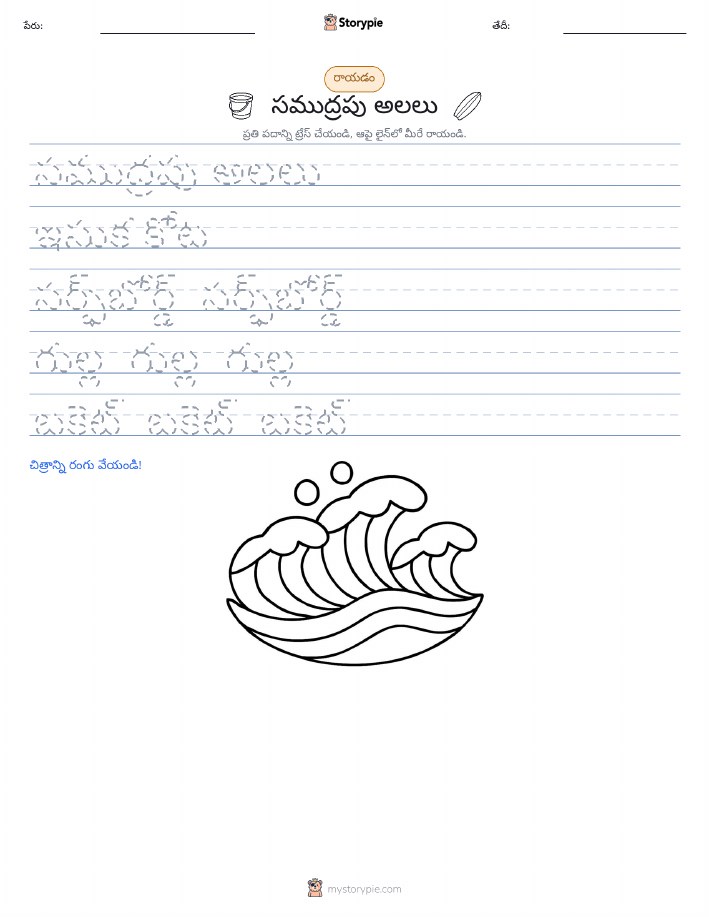 పేరు:
Storypie
తేదీ:
రాయడం
సముద్రపు అలలు
ప్రతి పదాన్ని ట్రేస్ చేయండి, ఆపై లైన్‌లో మీరే రాయండి.
సముద్రపు అలలు
ఇసుక కోట
సర్ఫ్‌బోర్డ్ సర్ఫ్‌బోర్డ్
గుల్ల గుల్ల గుల్ల
బకెట్ బకెట్ బకెట్
చిత్రాన్ని రంగు వేయండి!
mystorypie.com